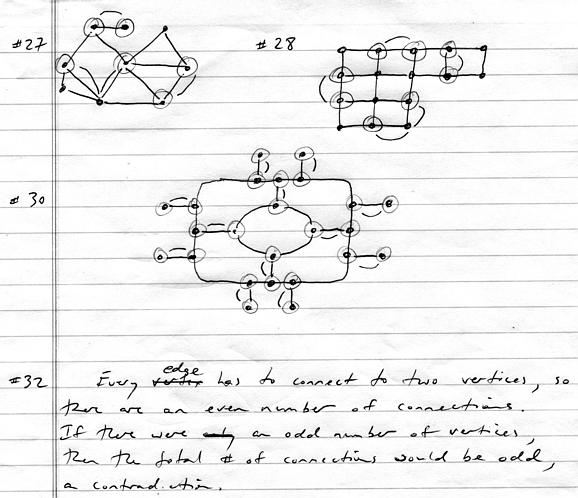 #27
#28
#30
#32 Every edge has to connect to two vertices, so
there are an even number of connections.
If there were an odd number of vertices,
then the total # of connections would be odd,
a contradiction.